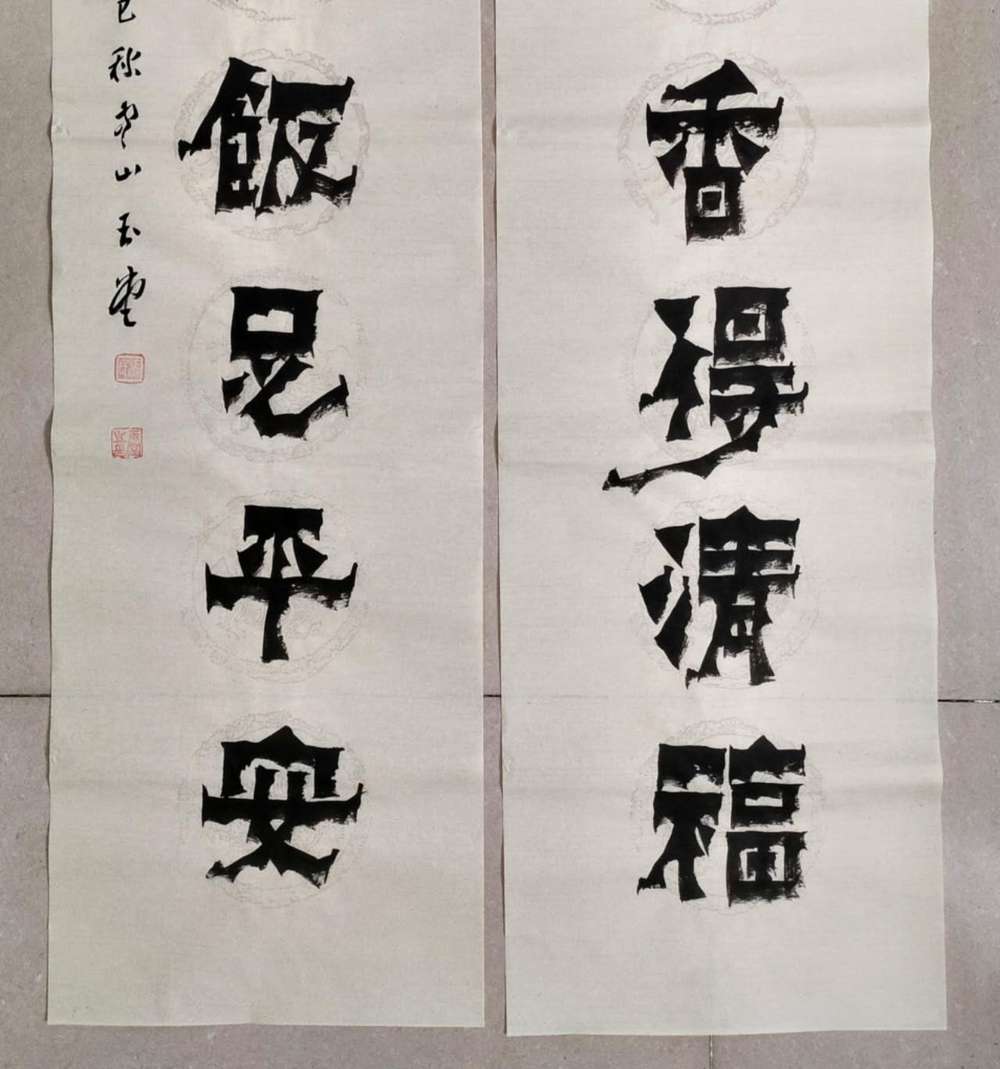 香得清福
飯足平安
巳秋山玉堂